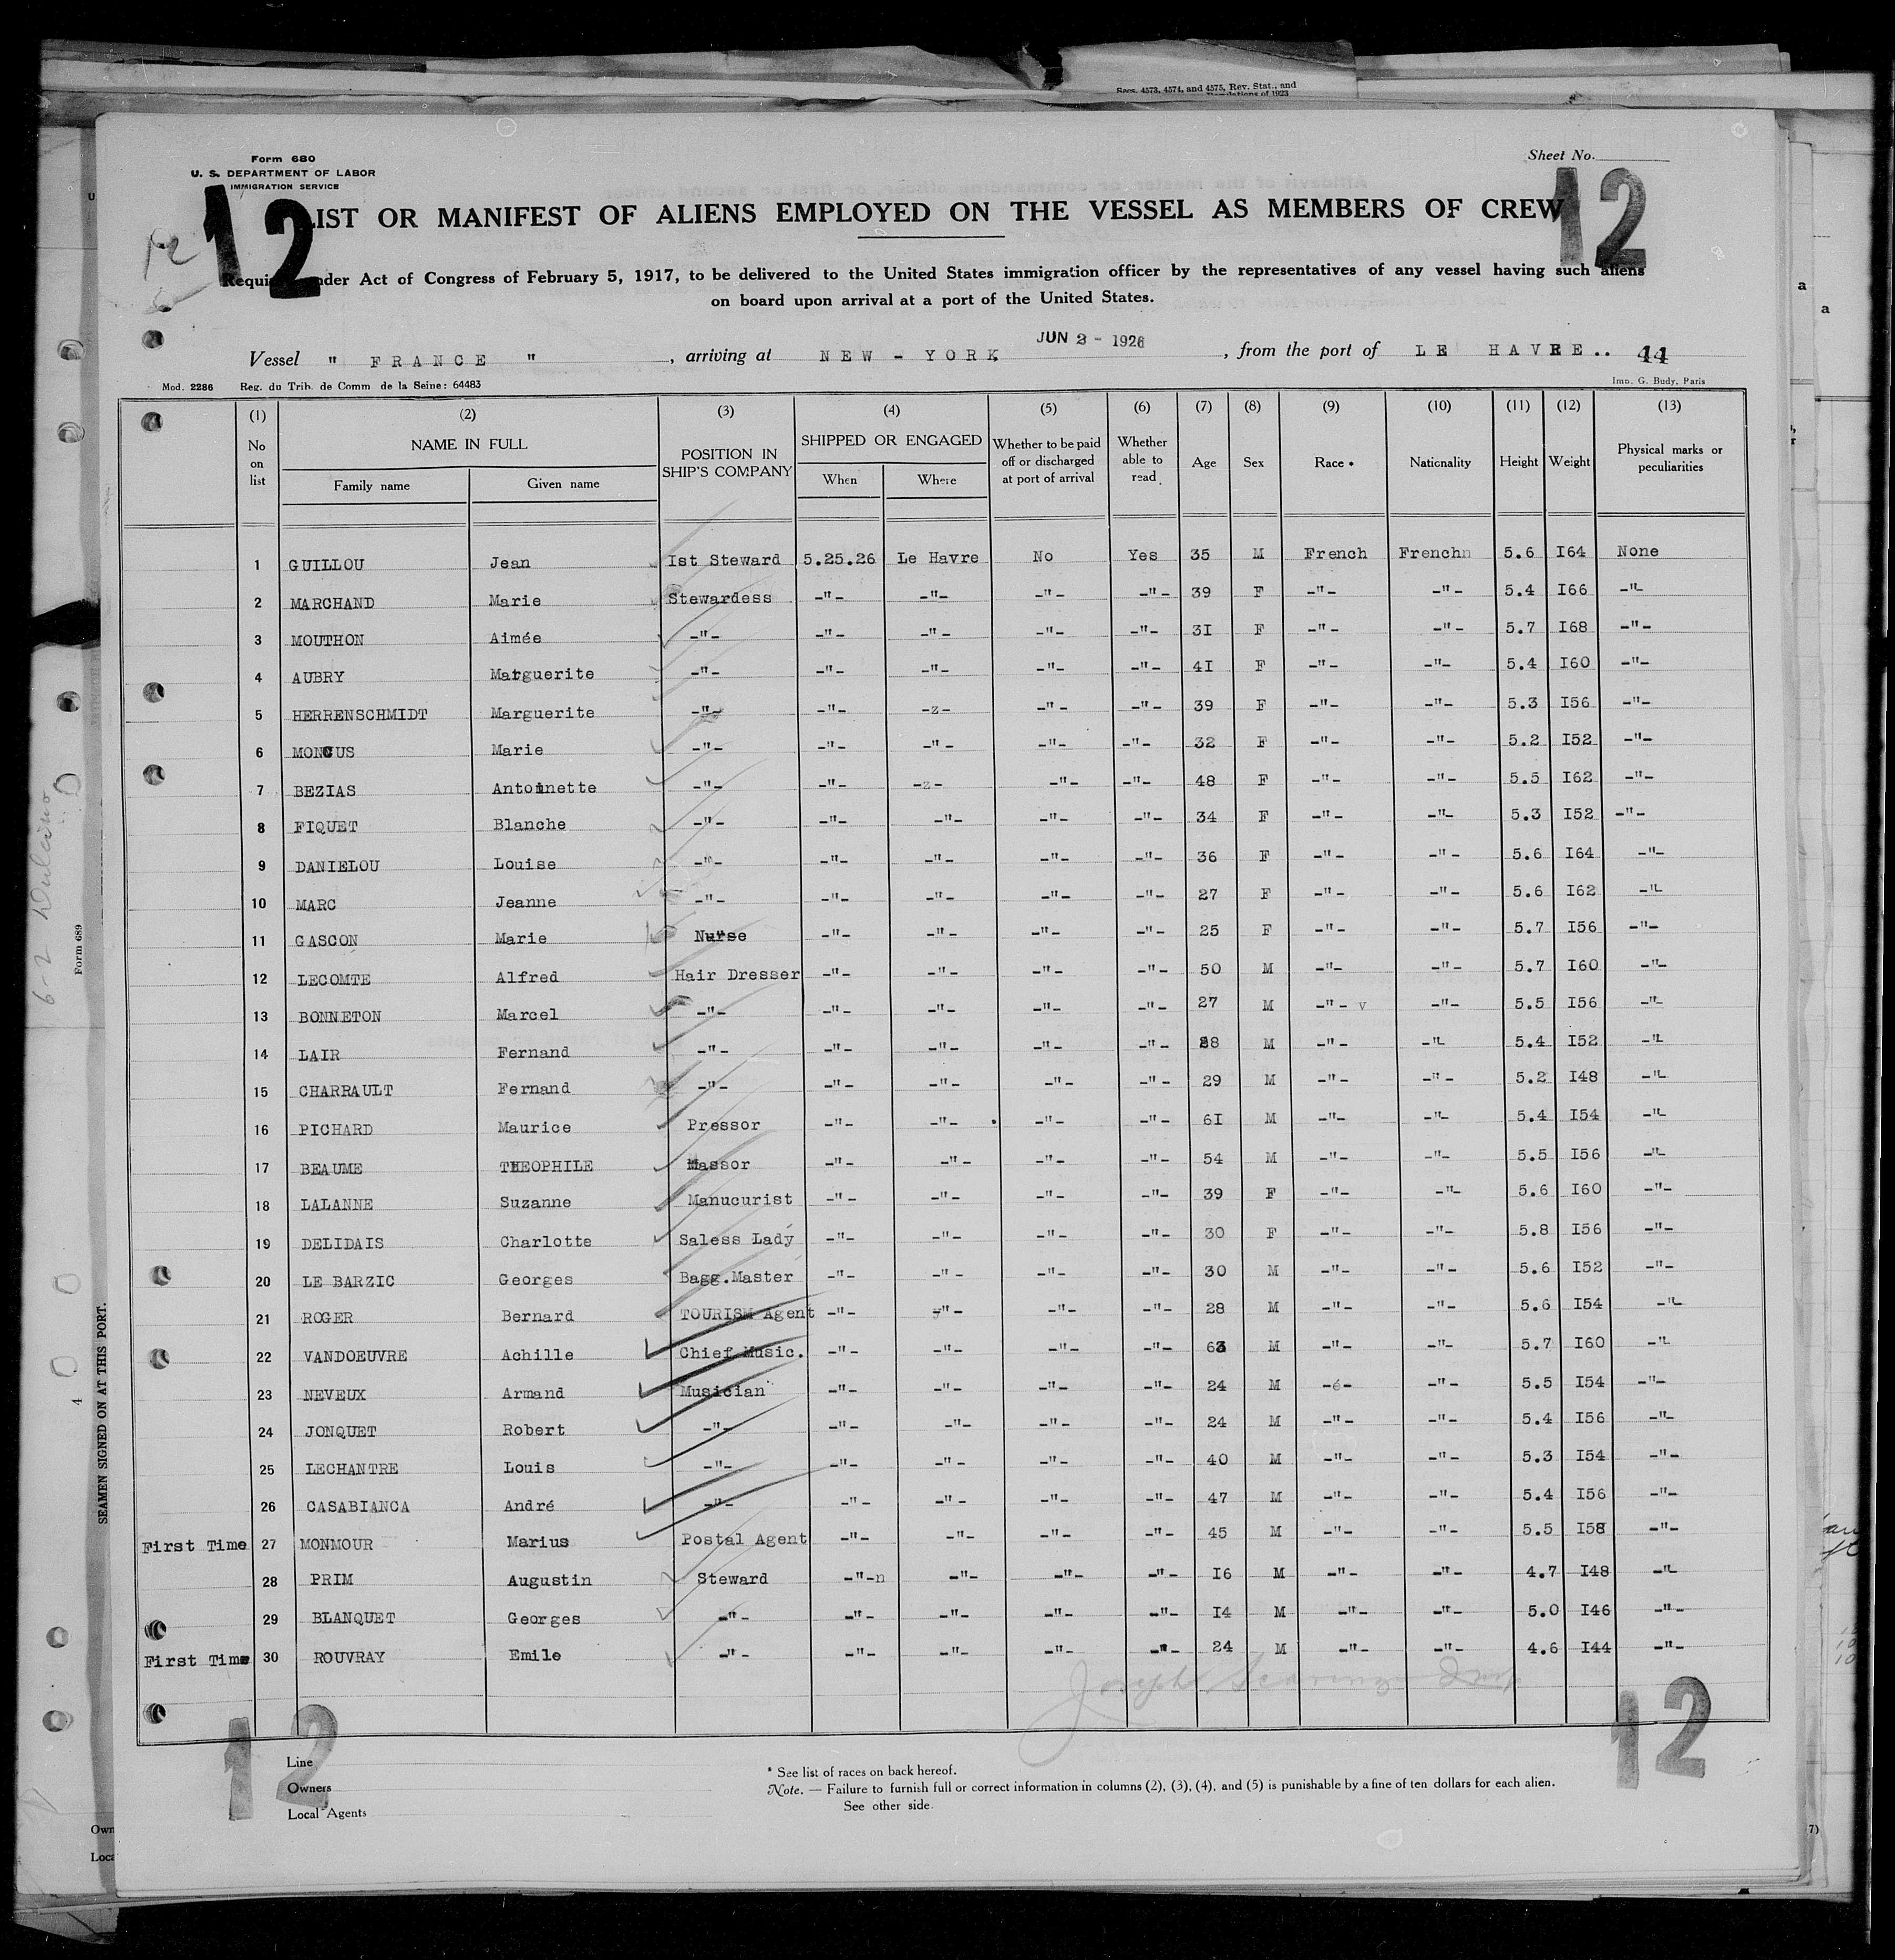 Secs. 4573, 4574, and 4575, Rev. Stat., and
Regulations of 1923
Form 680
U. S. DEPARTMENT OF LABOR
IMMIGRATION SERVICE
Sheet No.
12
12
12
LIST OR MANIFEST OF ALIENS EMPLOYED ON THE VESSEL AS MEMBERS OF CREW
Required under Act of Congress of February 5, 1917, to be delivered to the United States immigration officer by the representatives of any vessel having such aliens
on board upon arrival at a port of the United States.
Vessel " FRANCE " , arriving at NEW - YORK JUN 2 - 1926 , from the port of LE HAVRE.. 44
Mod. 2286 Reg. du Trib. de Comm de la Seine: 64483 Imp. G. Budy, Paris
(1) (2) (3) (4) (5) (6) (7) (8) (9) (10) (11) (12) (13)
No on list NAME IN FULL Family name Given name POSITION IN SHIP'S COMPANY SHIPPED OR ENGAGED When Where Whether to be paid off or discharged at port of arrival Whether able to read Age Sex Race * Nationality Height Weight Physical marks or peculiarities
1 GUILLOU Jean Ist Steward 5.25.26 Le Havre No Yes 35 M French Frenchn 5.6 I64 None
2 MARCHAND Marie Stewardess -"- -"- -"- -"- 39 F -"- -"- 5.4 I66 -"-
3 MOUTHON Aimée -"- -"- -"- -"- -"- 3I F -"- -"- 5.7 I68 -"-
4 AUBRY Marguerite -"- -"- -"- -"- -"- 4I F -"- -"- 5.4 I60 -"-
5 HERRENSCHMIDT Marguerite -"- -"- -z- -"- -"- 39 F -"- -"- 5.3 I56 -"-
6 MONCUS Marie -"- -"- -"- -"- -"- 32 F -"- -"- 5.2 I52 -"-
7 BEZIAS Antoinette -"- -"- -z- -"- -"- 48 F -"- -"- 5.5 I62 -"-
8 FIQUET Blanche -"- -"- -"- -"- -"- 34 F -"- -"- 5.3 I52 -"-
9 DANIELOU Louise -"- -"- -"- -"- -"- 36 F -"- -"- 5.6 I64 -"-
10 MARC Jeanne -"- -"- -"- -"- -"- 27 F -"- -"- 5.6 I62 -"-
11 GASCON Marie Nurse -"- -"- -"- -"- 25 F -"- -"- 5.7 I56 -"-
12 LECOMTE Alfred Hair Dresser -"- -"- -"- -"- 50 M -"- -"- 5.7 I60 -"-
13 BONNETON Marcel -"- -"- -"- -"- -"- 27 M -"- v -"- 5.5 I56 -"-
14 LAIR Fernand -"- -"- -"- -"- -"- 28 M -"- -"- 5.4 I52 -"-
15 CHARRAULT Fernand -"- -"- -"- -"- -"- 29 M -"- -"- 5.2 I48 -"-
16 PICHARD Maurice Pressor -"- -"- -"- -"- 6I M -"- -"- 5.4 I54 -"-
17 BEAUME THEOPHILE Massor -"- -"- -"- -"- 54 M -"- -"- 5.5 I56 -"-
18 LALANNE Suzanne Manucurist -"- -"- -"- -"- 39 F -"- -"- 5.6 I60 -"-
19 DELIDAIS Charlotte Saless Lady -"- -"- -"- -"- 30 F -"- -"- 5.8 I56 -"-
20 LE BARZIC Georges Bagg.Master -"- -"- -"- -"- 30 M -"- -"- 5.6 I52 -"-
21 ROGER Bernard TOURISM Agent -"- -"- -"- -"- 28 M -"- -"- 5.6 I54 -"-
22 VANDOEUVRE Achille Chief Music. -"- -"- -"- -"- 63 M -"- -"- 5.7 I60 -"-
23 NEVEUX Armand Musician -"- -"- -"- -"- 24 M -é- -"- 5.5 I54 -"-
24 JONQUET Robert -"- -"- -"- -"- -"- 24 M -"- -"- 5.4 I56 -"-
25 LECHANTRE Louis -"- -"- -"- -"- -"- 40 M -"- -"- 5.3 I54 -"-
26 CASABIANCA André -"- -"- -"- -"- -"- 47 M -"- -"- 5.4 I56 -"-
First Time 27 MONMOUR Marius Postal Agent -"- -"- -"- -"- 45 M -"- -"- 5.5 I58 -"-
28 PRIM Augustin Steward -"-n -"- -"- -"- I6 M -"- -"- 4.7 I48 -"-
29 BLANQUET Georges -"- -"- -"- -"- -"- I4 M -"- -"- 5.0 I46 -"-
First Time 30 ROUVRAY Emile -"- -"- -"- -"- -"- 24 M -"- -"- 4.6 I44 -"-
12
12
Line
Owners
Local Agents
* See list of races on back hereof.
Note. — Failure to furnish full or correct information in columns (2), (3), (4), and (5) is punishable by a fine of ten dollars for each alien.
See other side.
Form 689
SEAMEN SIGNED ON AT THIS PORT.